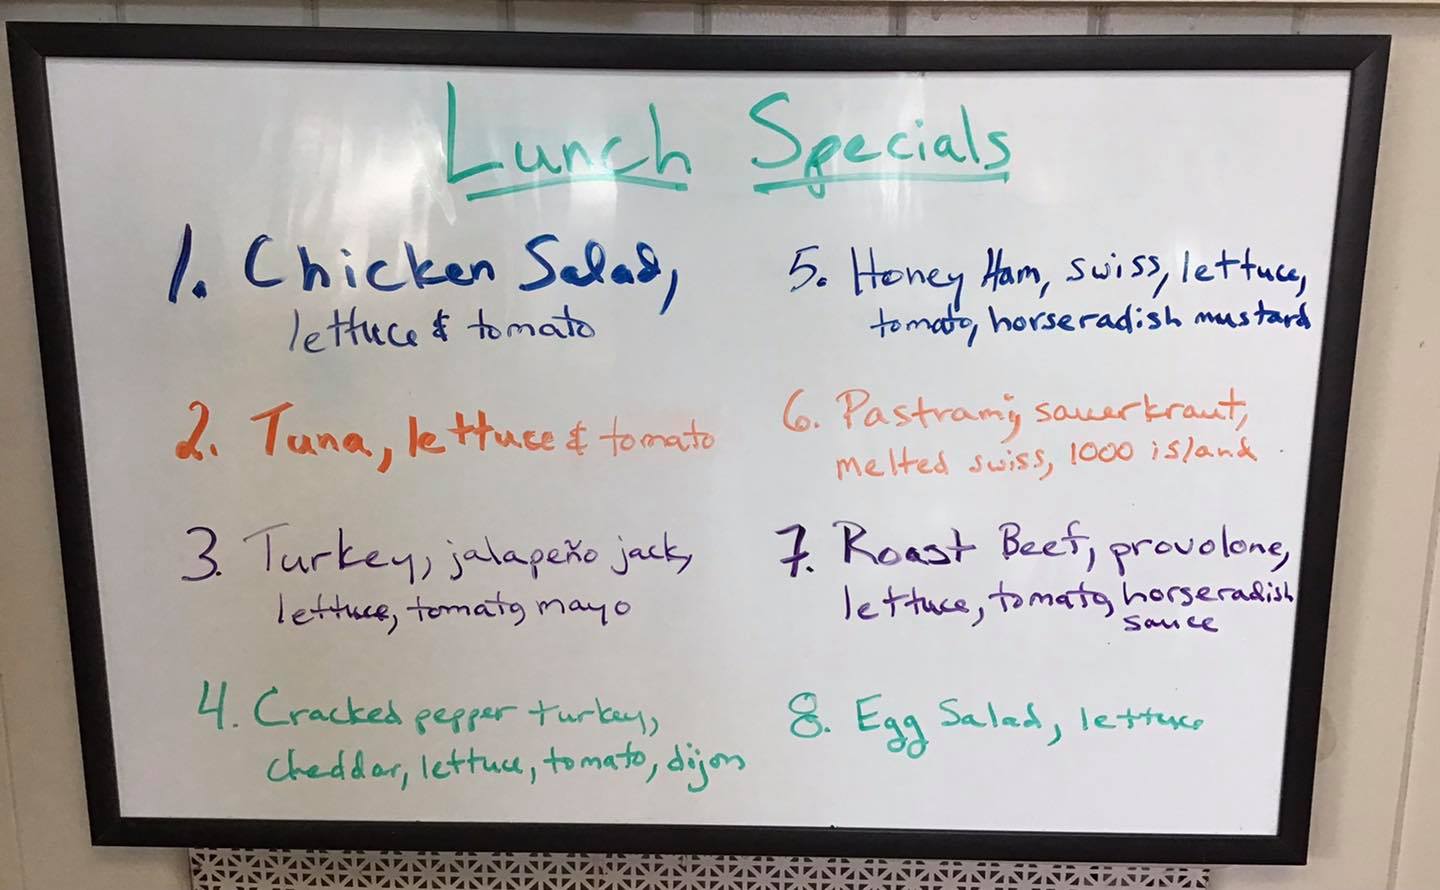 Lunch Specials
1. Chicken Salad,
lettuce & tomato
2. Tuna, lettuce & tomato
3. Turkey, jalapeño jack,
lettuce, tomato, mayo
4. Cracked pepper turkey,
cheddar, lettuce, tomato, dijon
5. Honey Ham, swiss, lettuce,
tomato, horseradish mustard
6. Pastrami, sauerkraut,
melted swiss, 1000 island
7. Roast Beef, provolone,
lettuce, tomato, horseradish
sauce
8. Egg Salad, lettuce